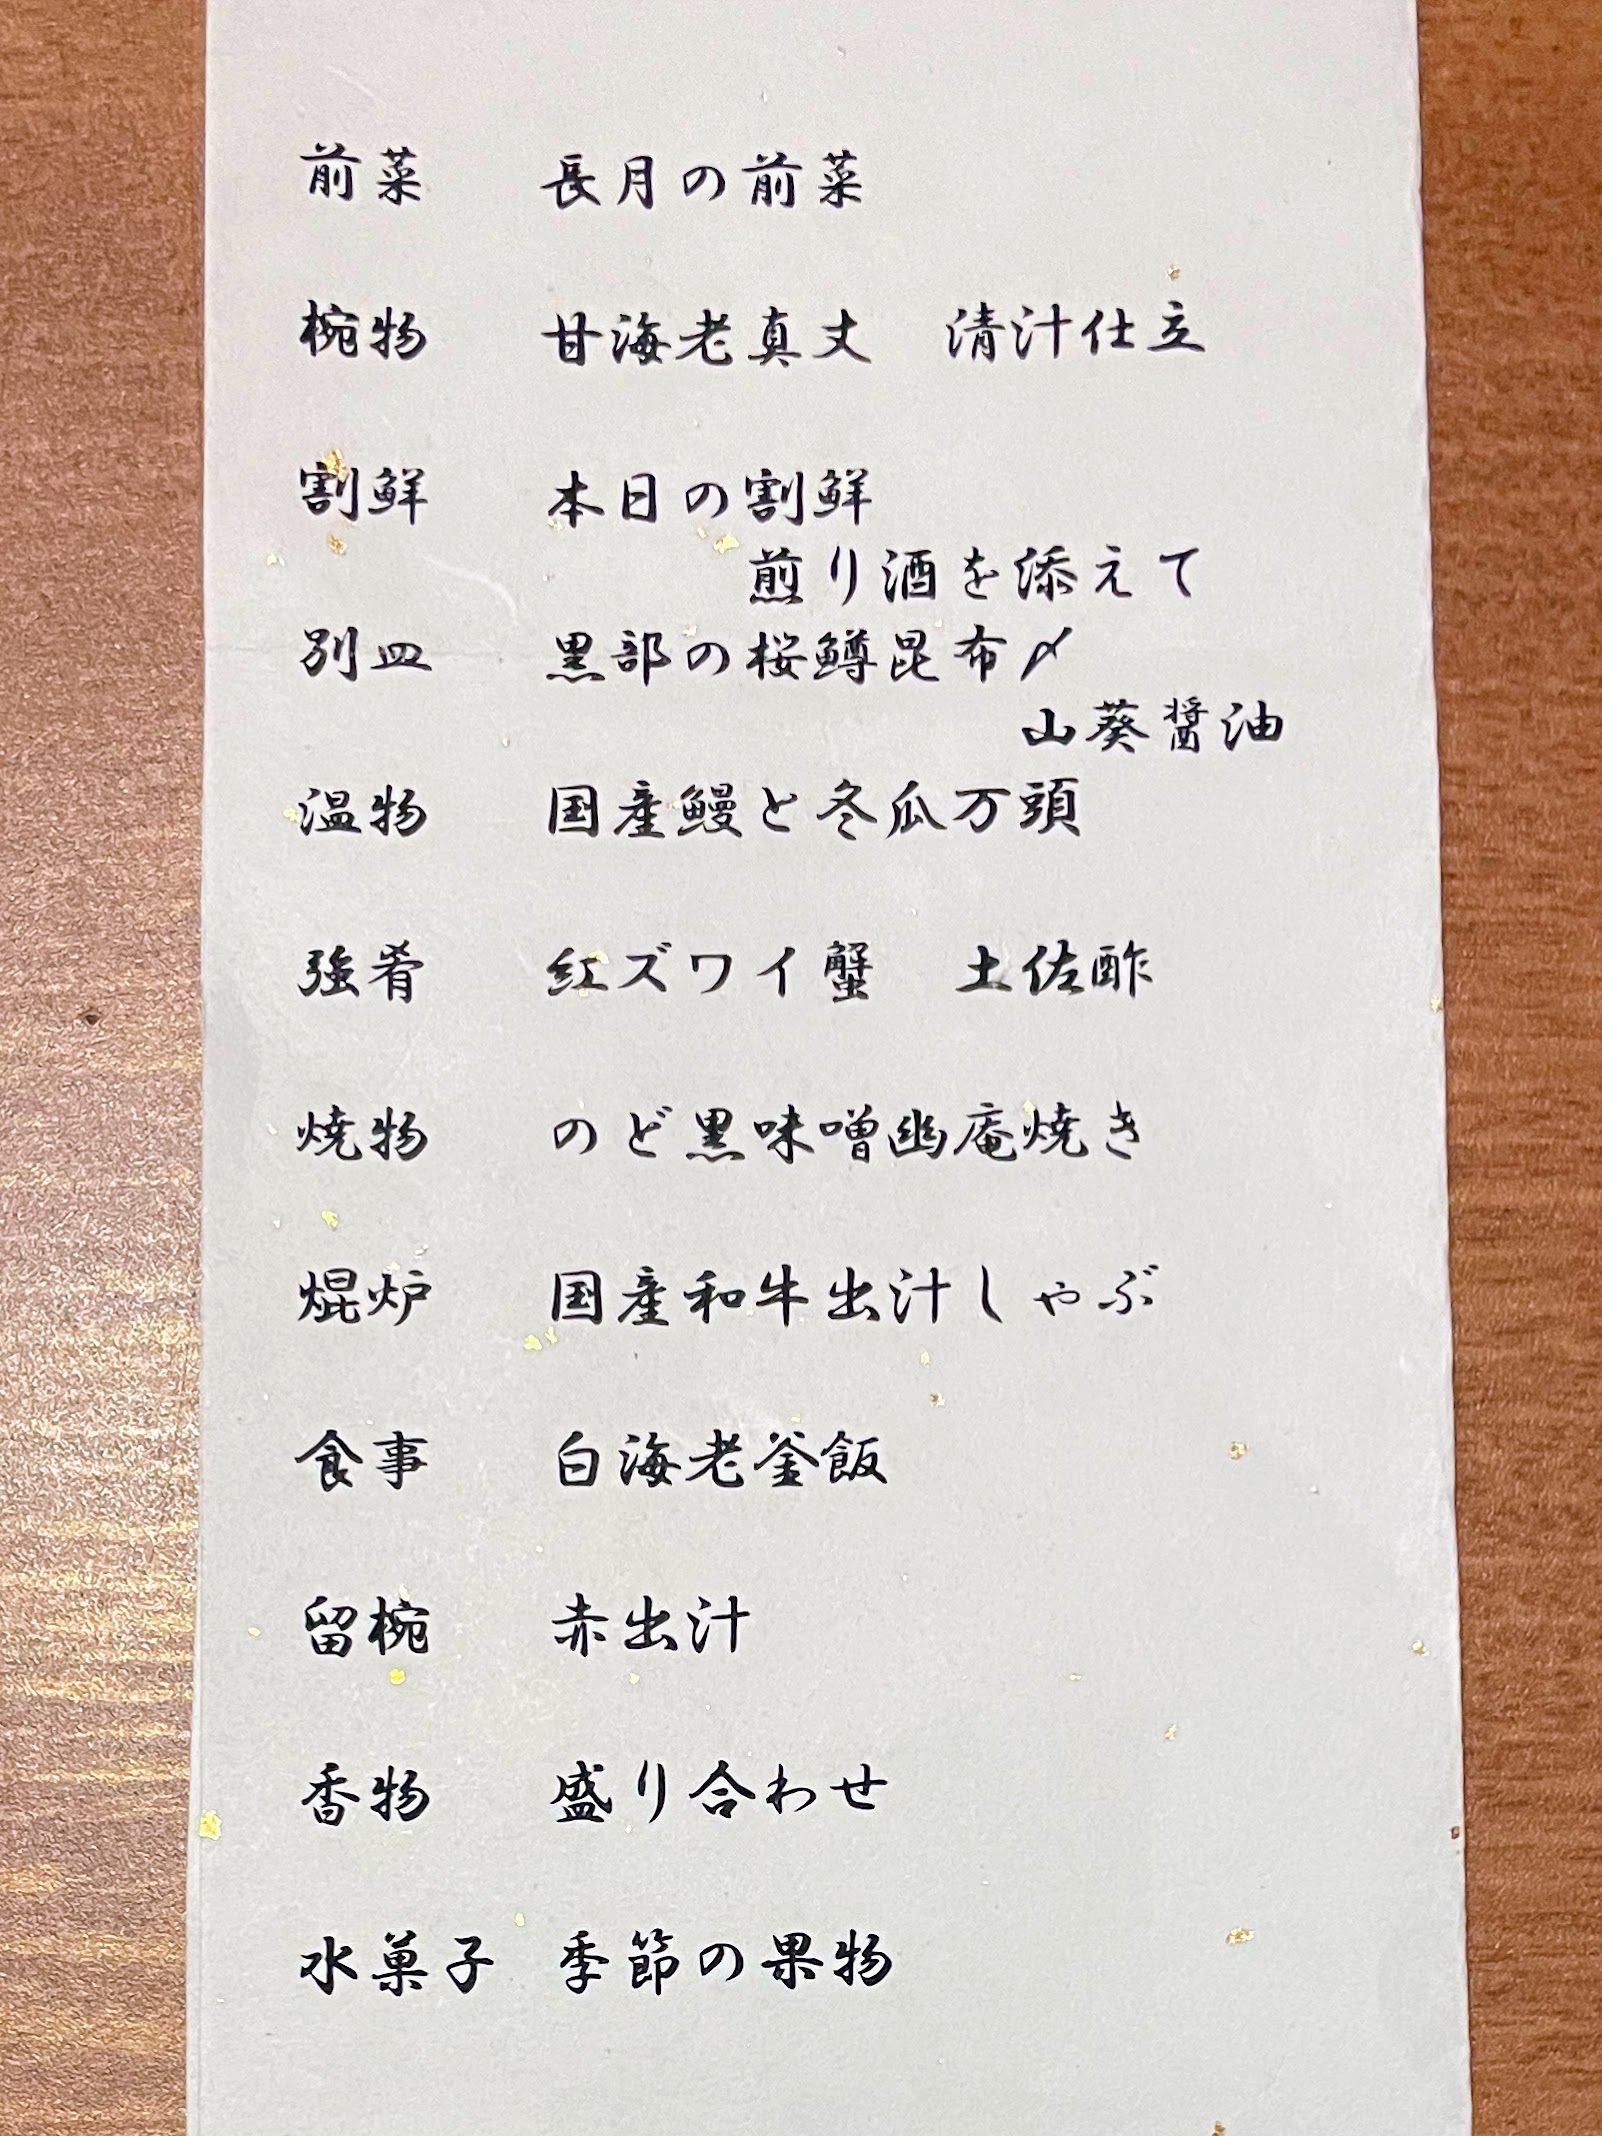 前菜　長月の前菜
椀物　甘海老真丈　清汁仕立
割鮮　本日の割鮮
煎り酒を添えて
別皿　黒部の桜鱒昆布〆
山葵醤油
温物　国産鰻と冬瓜万頭
強肴　紅ズワイ蟹　土佐酢
焼物　のど黒味噌幽庵焼き
焜炉　国産和牛出汁しゃぶ
食事　白海老釜飯
留椀　赤出汁
香物　盛り合わせ
水菓子　季節の果物